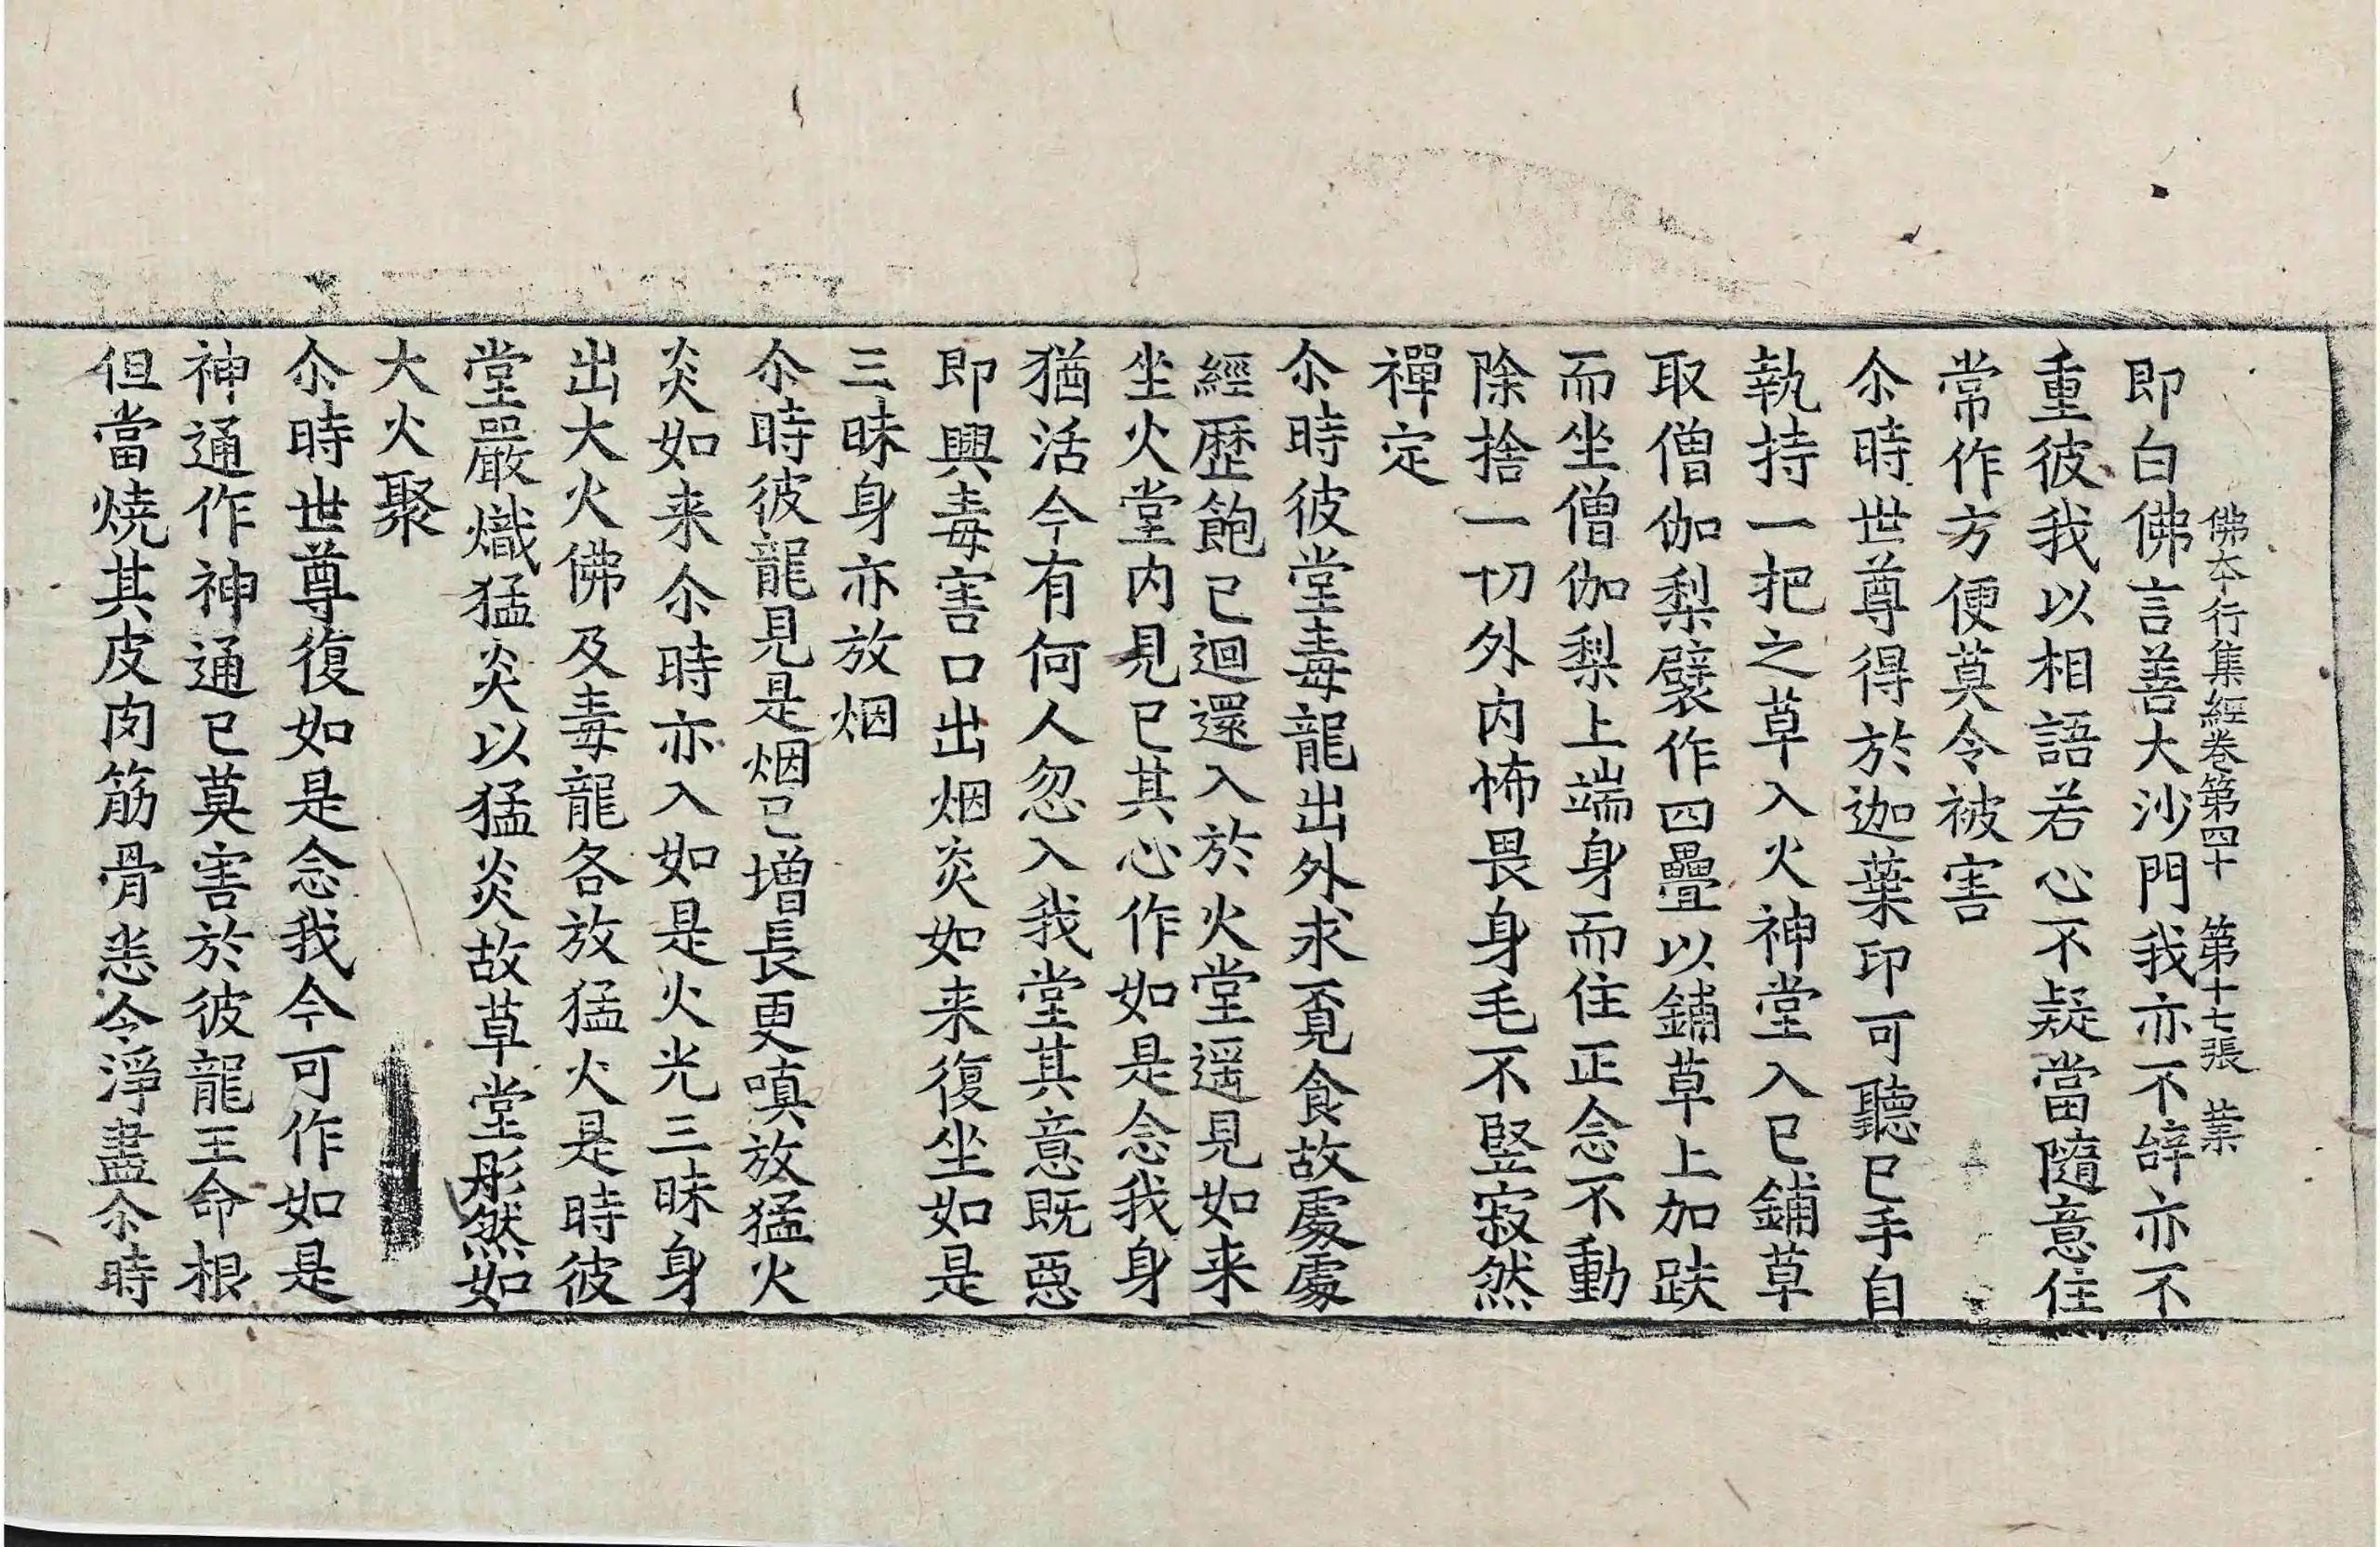 佛本行集經卷第四十　第十七張　業
即白佛言善大沙門我亦不辝亦不
重彼我以相語若心不疑當隨意住
常作方便莫令被害
尒時世尊得於迦葉印可聽已手自
執持一把之草入火神堂入已鋪草
取僧伽梨襞作四疊以鋪草上加趺
而坐僧伽梨上端身而住正念不動
除捨一切外内怖畏身毛不竪寂然
禪定
尒時彼堂毒龍出外求覓食故處處
經歷飽已迴還入於火堂遥見如来
坐火堂内見已其心作如是念我身
猶活今有何人忽入我堂其意既惡
即興毒害口出烟炎如来復坐如是
三昧身亦放烟
尒時彼龍見是烟已增長更嗔放猛火
炎如来尒時亦入如是火光三昧身
出大火佛及毒龍各放猛火是時彼
堂嚴熾猛炎以猛炎故草堂彤然如
大火聚
尒時世尊復如是念我今可作如是
神通作神通已莫害於彼龍王命根
但當燒其皮肉筋骨悉令淨盡尒時